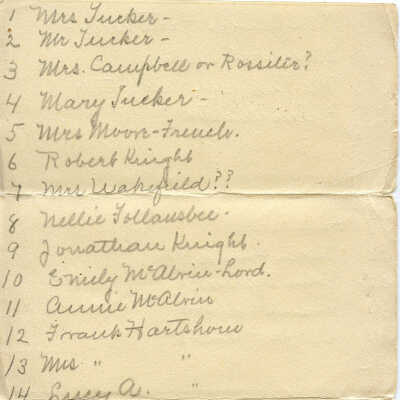 1 Mrs Tucker -
2 Mr Tucker -
3 Mrs. Campbell or Rossiter?
4 Mary Tucker -
5 Mrs Moore-French.
6 Robert Knight
7 Mrs Wakefield??
8 Nellie Follansbee -
9 Jonathan Knight.
10 Emily McAlvin-Lord.
11 Annie McAlvin
12 Frank Hartshorn
13 Mrs " "
14 Lucy A. "